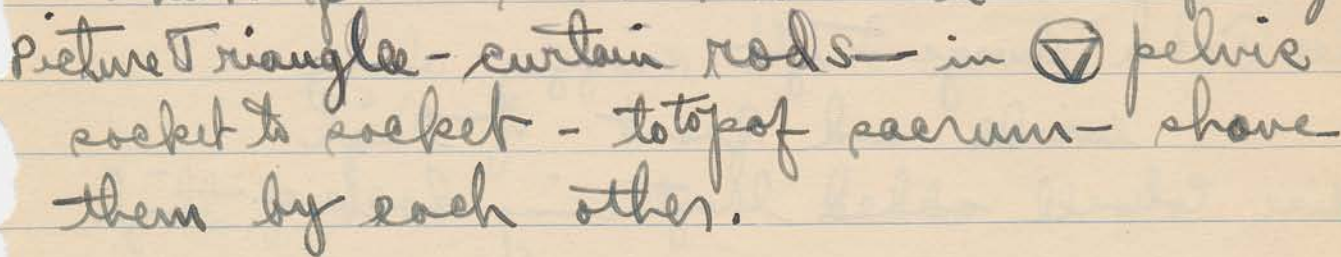 Picture Triangle - curtain rods - in pelvic
socket to socket - to top of sacrum - shove
them by each other.